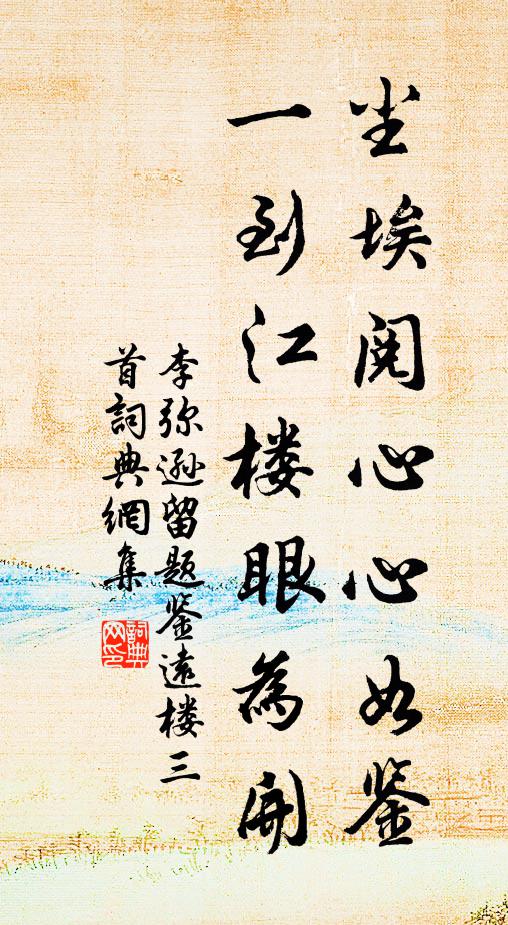 尘埃阅心心如鉴
一到江楼眼为开
李弥逊留题鉴远楼三
首词典網集
詞典網印